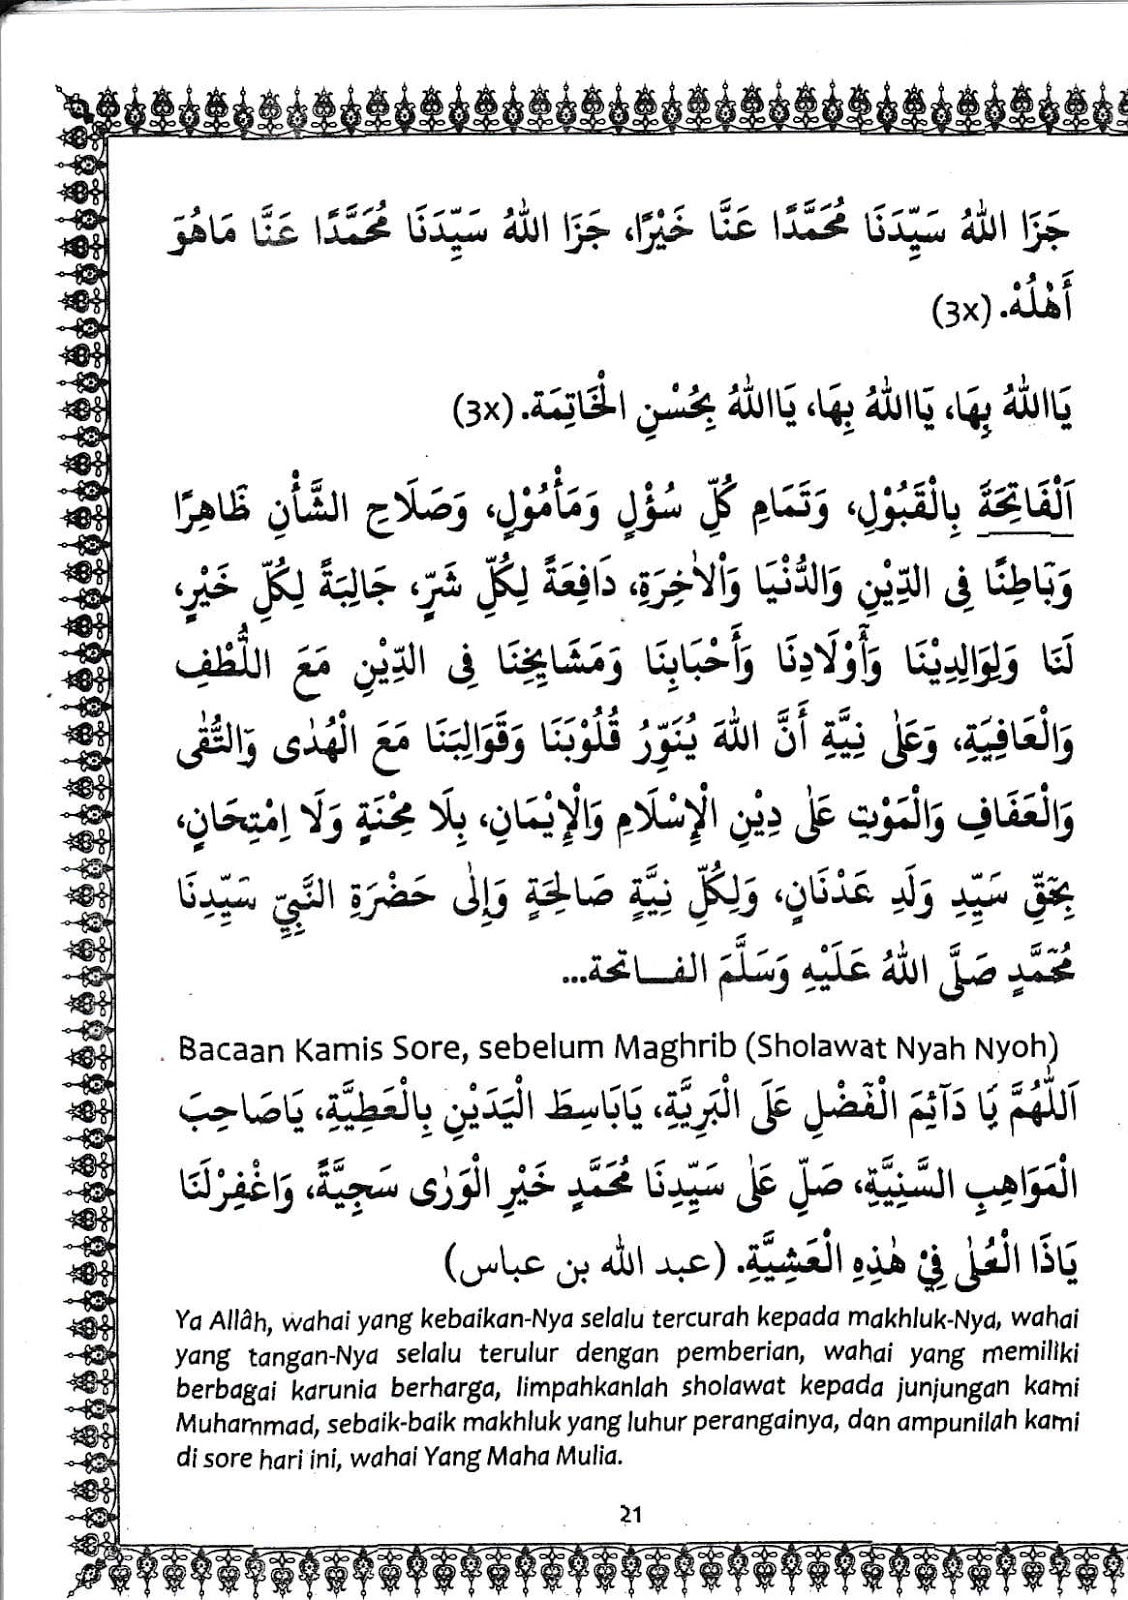 جَزَا اللهُ سَيِّدَنَا مُحَمَّدًا عَنَّا خَيْرًا، جَزَا اللهُ سَيِّدَنَا مُحَمَّدًا عَنَّا مَاهُوَ
أَهْلُهْ. (3x)
يَااللهُ بِهَا، يَااللهُ بِهَا، يَااللهُ بِحُسْنِ الْخَاتِمَة. (3x)
اَلْفَاتِحَةَ بِالْقَبُوْلِ، وَتَمَامِ كُلِّ سُؤْلٍ وَمَأْمُوْلٍ، وَصَلَاحِ الشَّأْنِ ظَاهِرًا
وَبَاطِنًا فِى الدِّيْنِ وَالدُّنْيَا وَاْلاٰخِرَةِ، دَافِعَةً لِكُلِّ شَرٍّ، جَالِبَةً لِكُلِّ خَيْرٍ،
لَنَا وَلِوَالِدِيْنَا وَأَوْلَادِنَا وَأَحْبَابِنَا وَمَشَايِخِنَا فِى الدِّيْنِ مَعَ اللُّطْفِ
وَالْعَافِيَةِ، وَعَلٰى نِيَّةِ أَنَّ اللهَ يُنَوِّرُ قُلُوْبَنَا وَقَوَالِبَنَا مَعَ الْهُدٰى وَالتُّقٰى
وَالْعَفَافِ وَالْمَوْتِ عَلٰى دِيْنِ الْإِسْلَامِ وَالْإِيْمَانِ، بِلَا مِحْنَةٍ وَلَا اِمْتِحَانٍ،
بِحَقِّ سَيِّدِ وَلَدِ عَدْنَانٍ، وَلِكُلِّ نِيَّةٍ صَالِحَةٍ وَإِلٰى حَضْرَةِ النَّبِيِّ سَيِّدِنَا
مُحَمَّدٍ صَلَّى اللهُ عَلَيْهِ وَسَلَّمَ الفـــاتحة...
Bacaan Kamis Sore, sebelum Maghrib (Sholawat Nyah Nyoh)
اَللّٰهُمَّ يَا دَآئِمَ الْفَضْلِ عَلَى الْبَرِيَّةِ، يَابَاسِطَ الْيَدَيْنِ بِالْعَطِيَّةِ، يَاصَاحِبَ
الْمَوَاهِبِ السَّنِيَّةِ، صَلِّ عَلٰى سَيِّدِنَا مُحَمَّدٍ خَيْرِ الْوَرٰى سَجِيَّةً، وَاغْفِرْلَنَا
يَاذَا الْعُلٰى فِيْ هٰذِهِ الْعَشِيَّةِ. (عبد الله بن عباس)
Ya Allâh, wahai yang kebaikan-Nya selalu tercurah kepada makhluk-Nya, wahai
yang tangan-Nya selalu terulur dengan pemberian, wahai yang memiliki
berbagai karunia berharga, limpahkanlah sholawat kepada junjungan kami
Muhammad, sebaik-baik makhluk yang luhur perangainya, dan ampunilah kami
di sore hari ini, wahai Yang Maha Mulia.
21